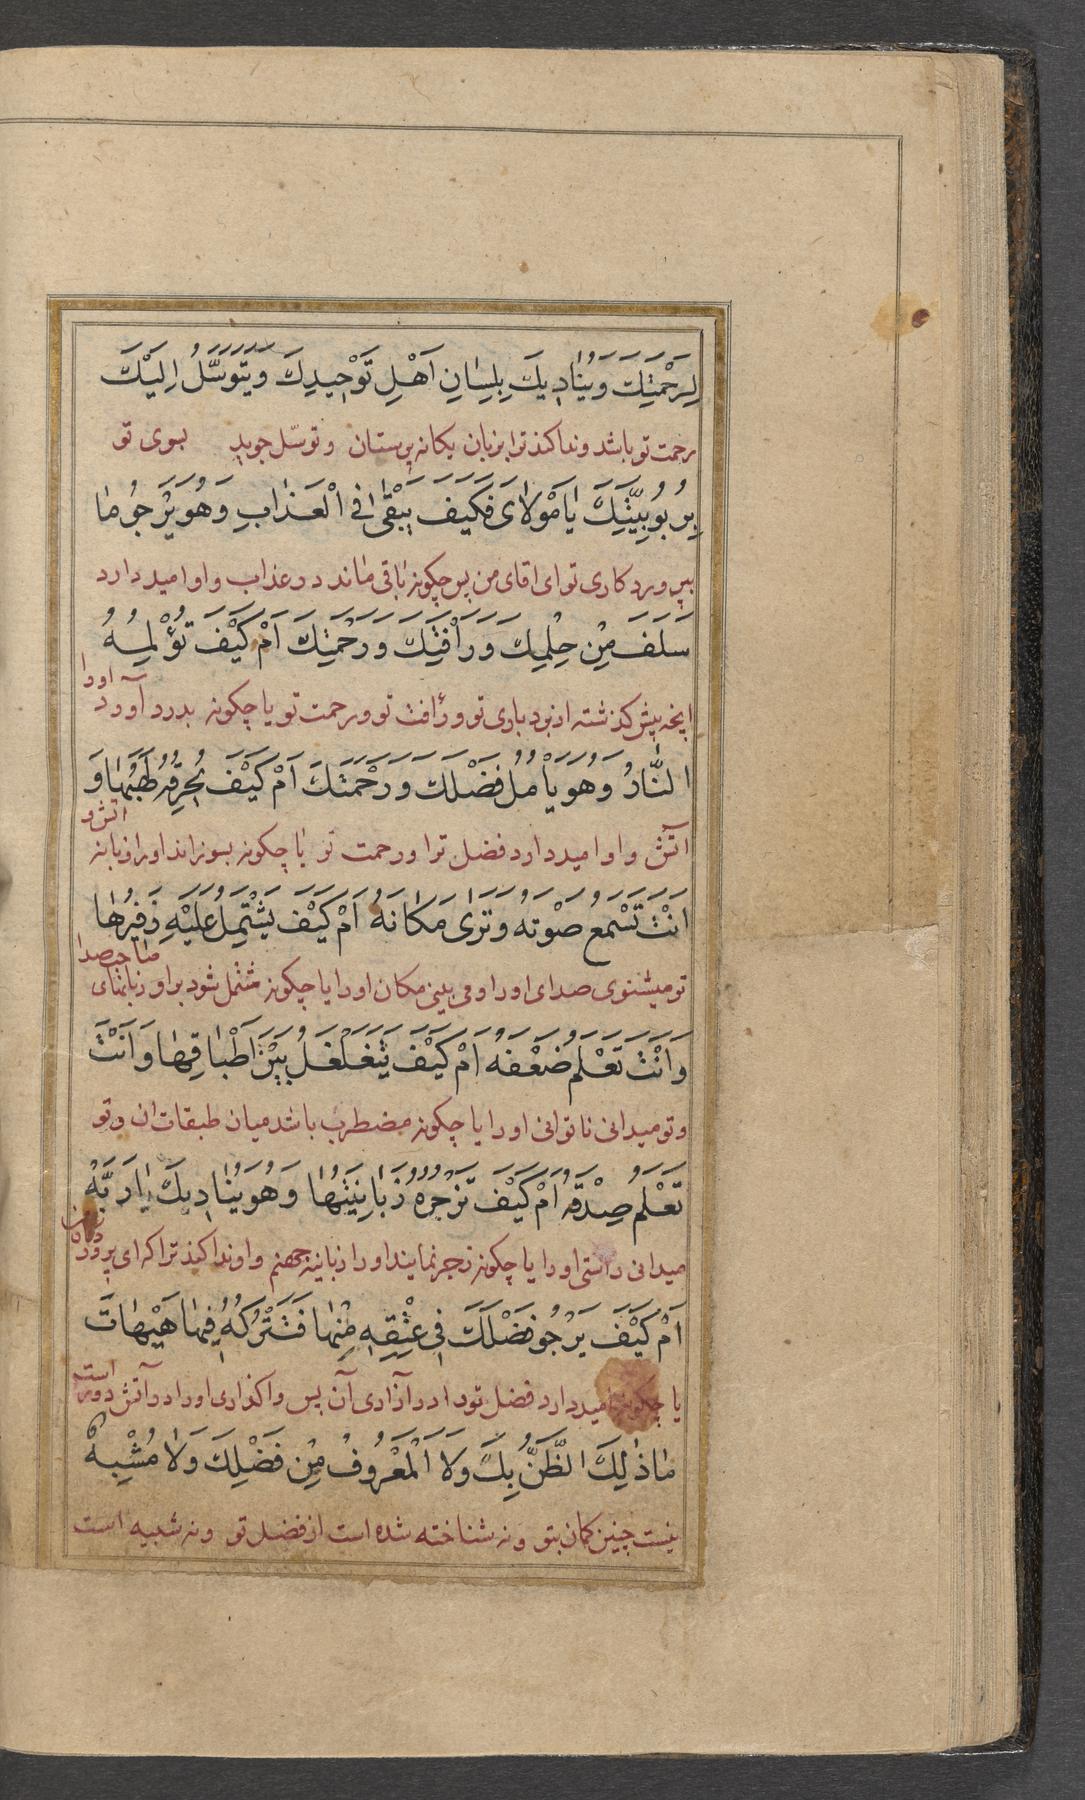 لِرَحْمَتِكَ وَيُنَادِيكَ بِلِسَانِ اَهْلِ تَوْحِيدِكَ وَيَتَوَسَّلُ اِلَيْكَ
رحمت تو باشد و ندا کند ترا بزبان یکانه پرستان و توسّل جوید بسوی تو
بِرُبُوبِيَّتِكَ يَا مَوْلَاىَ فَكَيْفَ يَبْقٰى فِى الْعَذَابِ وَهُوَ يَرْجُو مَا
بپروردکاری تو ای اقای من پس چکونه باقی ماند در عذاب و او امید دارد
سَلَفَ مِنْ حِلْمِكَ وَرَاْفَتِكَ وَرَحْمَتِكَ اَمْ كَيْفَ تُؤْلِمُهُ
انچه پیش کذشته از بردباری تو و رٲفت تو و رحمت تو یا چکونه بدرد آورد اورا
النَّارُ وَهُوَ يَاْمُلُ فَضْلَكَ وَرَحْمَتَكَ اَمْ كَيْفَ يُحْرِقُهُ لَهَبُهَا وَ
آتش و او امید دارد فضل ترا و رحمت تو یا چکونه بسوزاند اورا زبانه اتش و
اَنْتَ تَسْمَعُ صَوْتَهُ وَتَرٰى مَكَانَهُ اَمْ كَيْفَ يَشْتَمِلُ عَلَيْهِ زَفِيرُهَا
تو میشنوی صدای اورا و می بینی مکان اورا یا چکونه مشتمل شود بر او زبانهای صاحب صدا
وَاَنْتَ تَعْلَمُ ضَعْفَهُ اَمْ كَيْفَ يَتَغَلْغَلُ بَيْنَ اَطْبَاقِهَا وَاَنْتَ
و تو میدانی ناتوانی اورا یا چکونه مضطرب باشد میان طبقات ان و تو
تَعْلَمُ صِدْقَهُ اَمْ كَيْفَ تَزْجُرُهُ زَبَانِيَتُهَا وَهُوَ يُنَادِيكَ يَا رَبَّهُ
میدانی راستی اورا یا چکونه زجر نمایند اورا زبانیه جهنم و او ندا کند ترا که ای پرورد
اَمْ كَيْفَ يَرْجُو فَضْلَكَ فِى عِتْقِهِ مِنْهَا فَتَتْرُكُهُ فِيهَا هَيْهَاتَ
یا چکونه امید دارد فضل تو را در آزادی آن پس واکذاری اورا در آتش دور است
مَا ذٰلِكَ الظَّنُّ بِكَ وَلَا الْمَعْرُوفُ مِنْ فَضْلِكَ وَلَا مُشْبِهٌ
نیست چنین کمان بتو و نه شناخته شده است از فضل تو و نه شبیه است